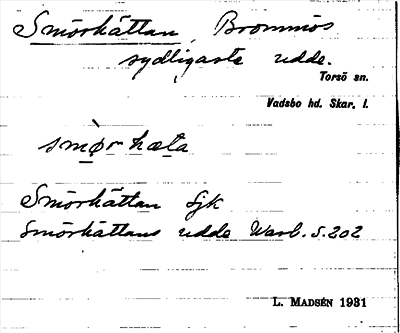 Smörhättan, Brommös
sydligaste udde.
Torsö sn.
Vadsbo hd. Skar. l.
smø̀r hæta
Smörhättan Sjk
Smörhättans udde Warb. S. 202
L. MADSÉN 1931